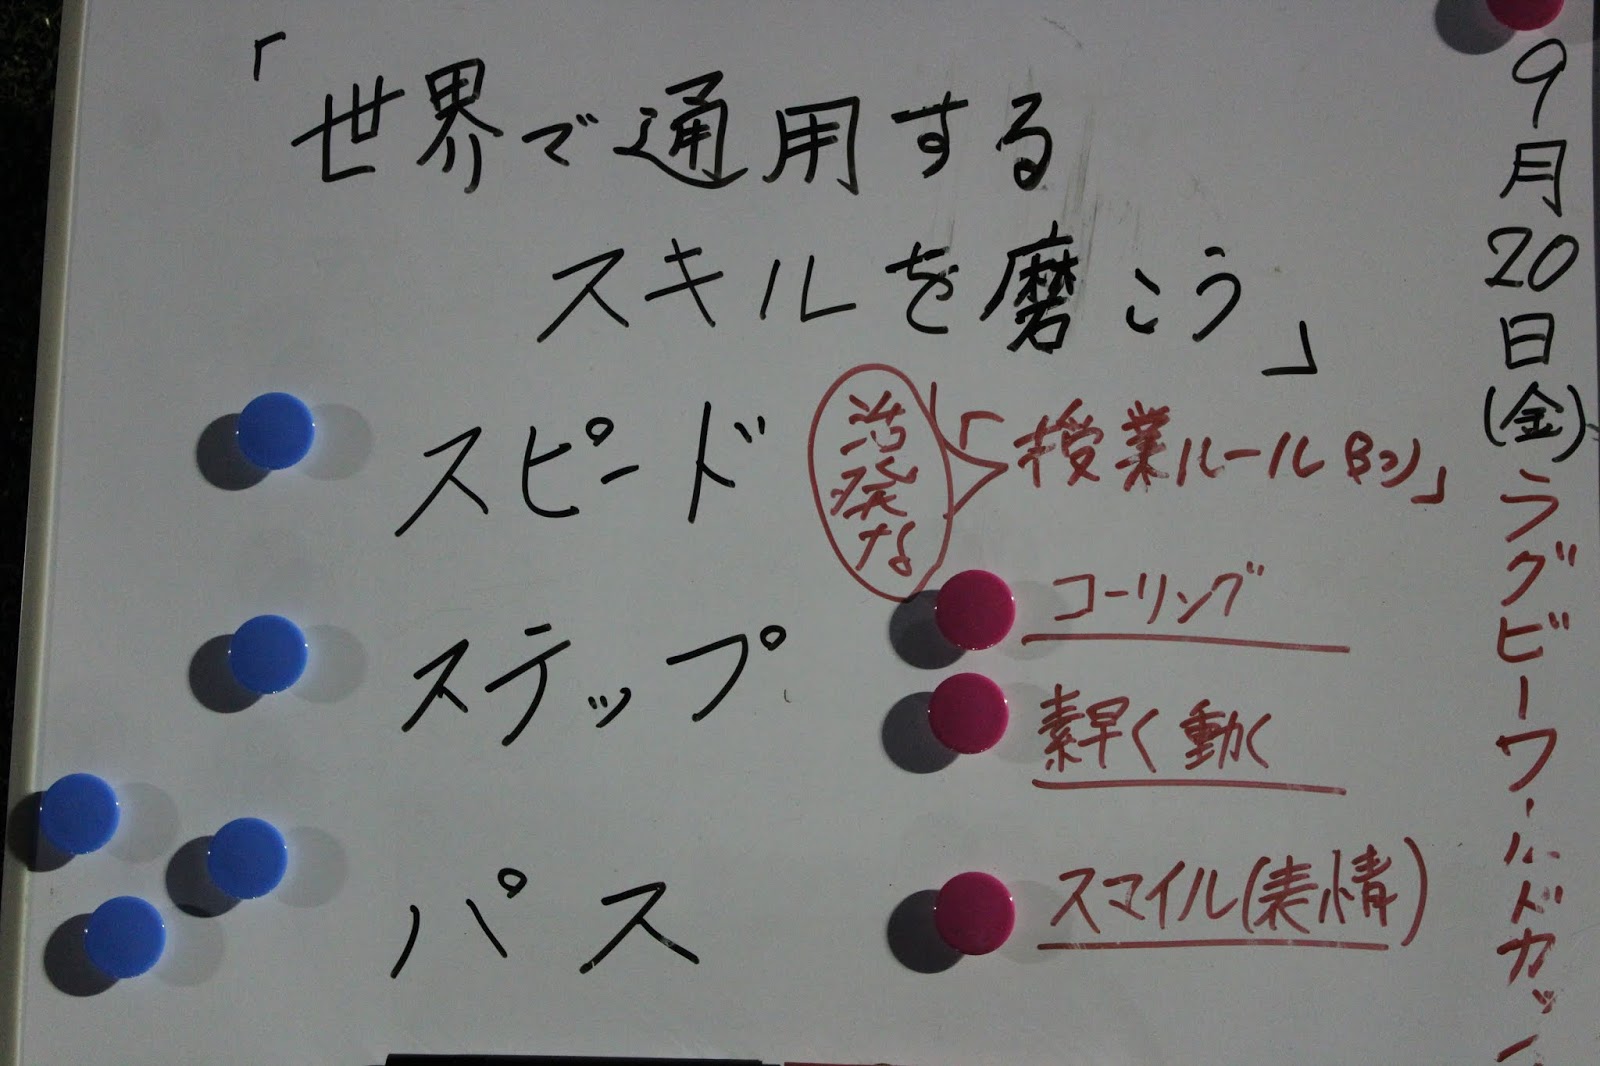 「世界で通用する
スキルを磨こう」
スピード
ステップ
パス
活発な
「授業ルール
コーリング
素早く動く
スマイル(表情)
9月20日(金)ラグビーワールドカッ